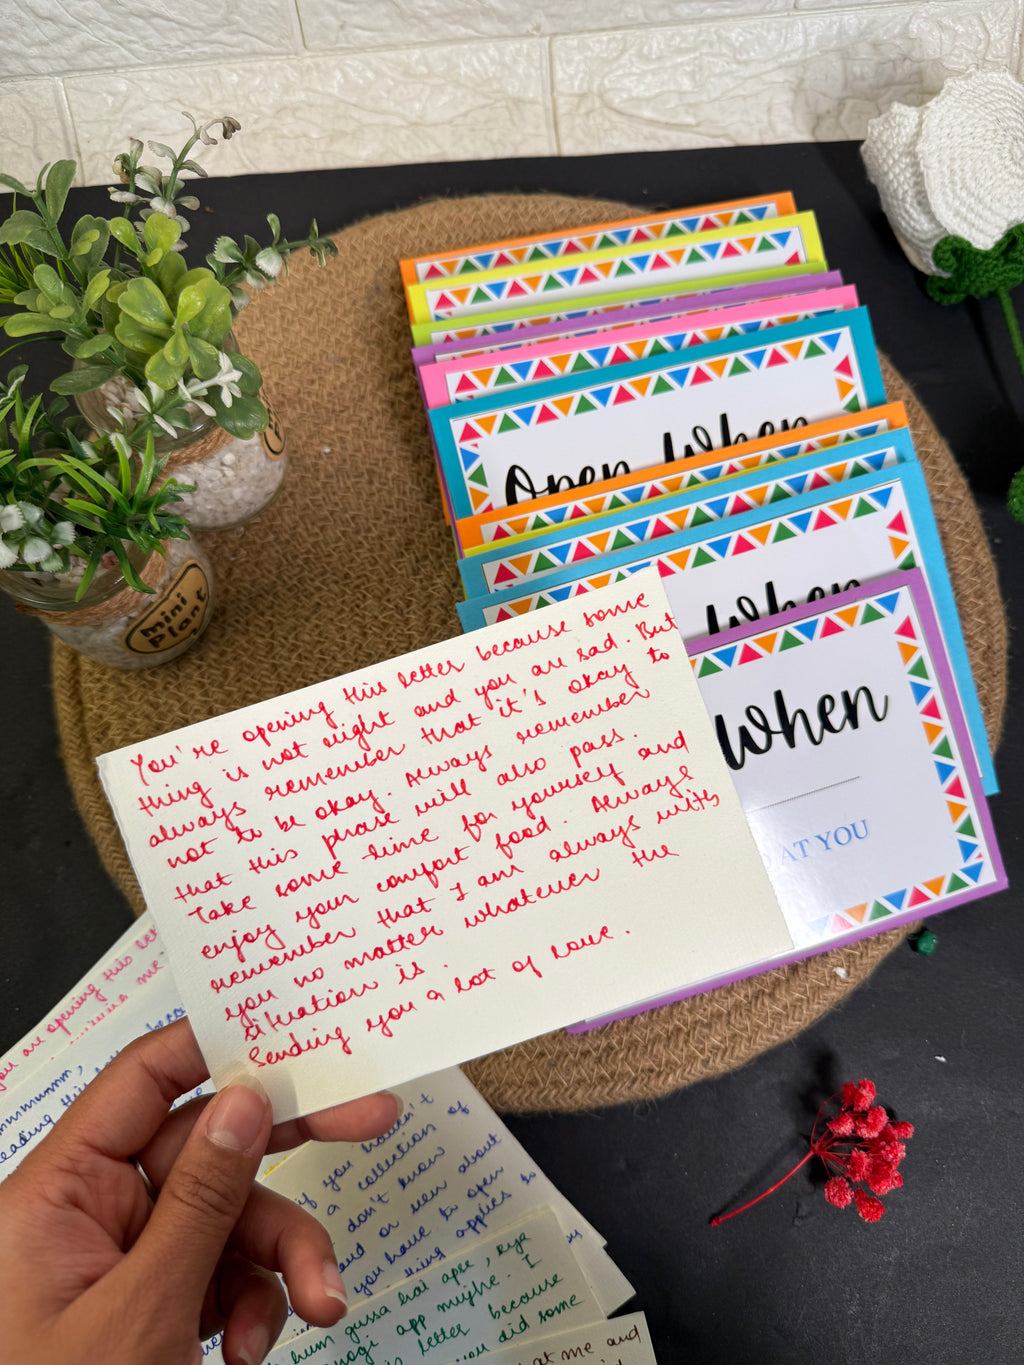 Open When
when
When
AT YOU
mini
Plant
You're opening this letter because some
thing is not right and you are sad. But
always remember that it's okay to
not to be okay. Always remember
that this phase will also pass.
Take some time for yourself and
enjoy your comfort food. Always
remember that I am always with
you no matter whatever the
situation is.
Sending you a lot of love.
you are opening this
me
eading this
if you haven't
a collection of
don't know
and or new about
you have to open
thing applies to
hum gussa hai apse, kya
app mujhe. I
letter because
you did some
at me and